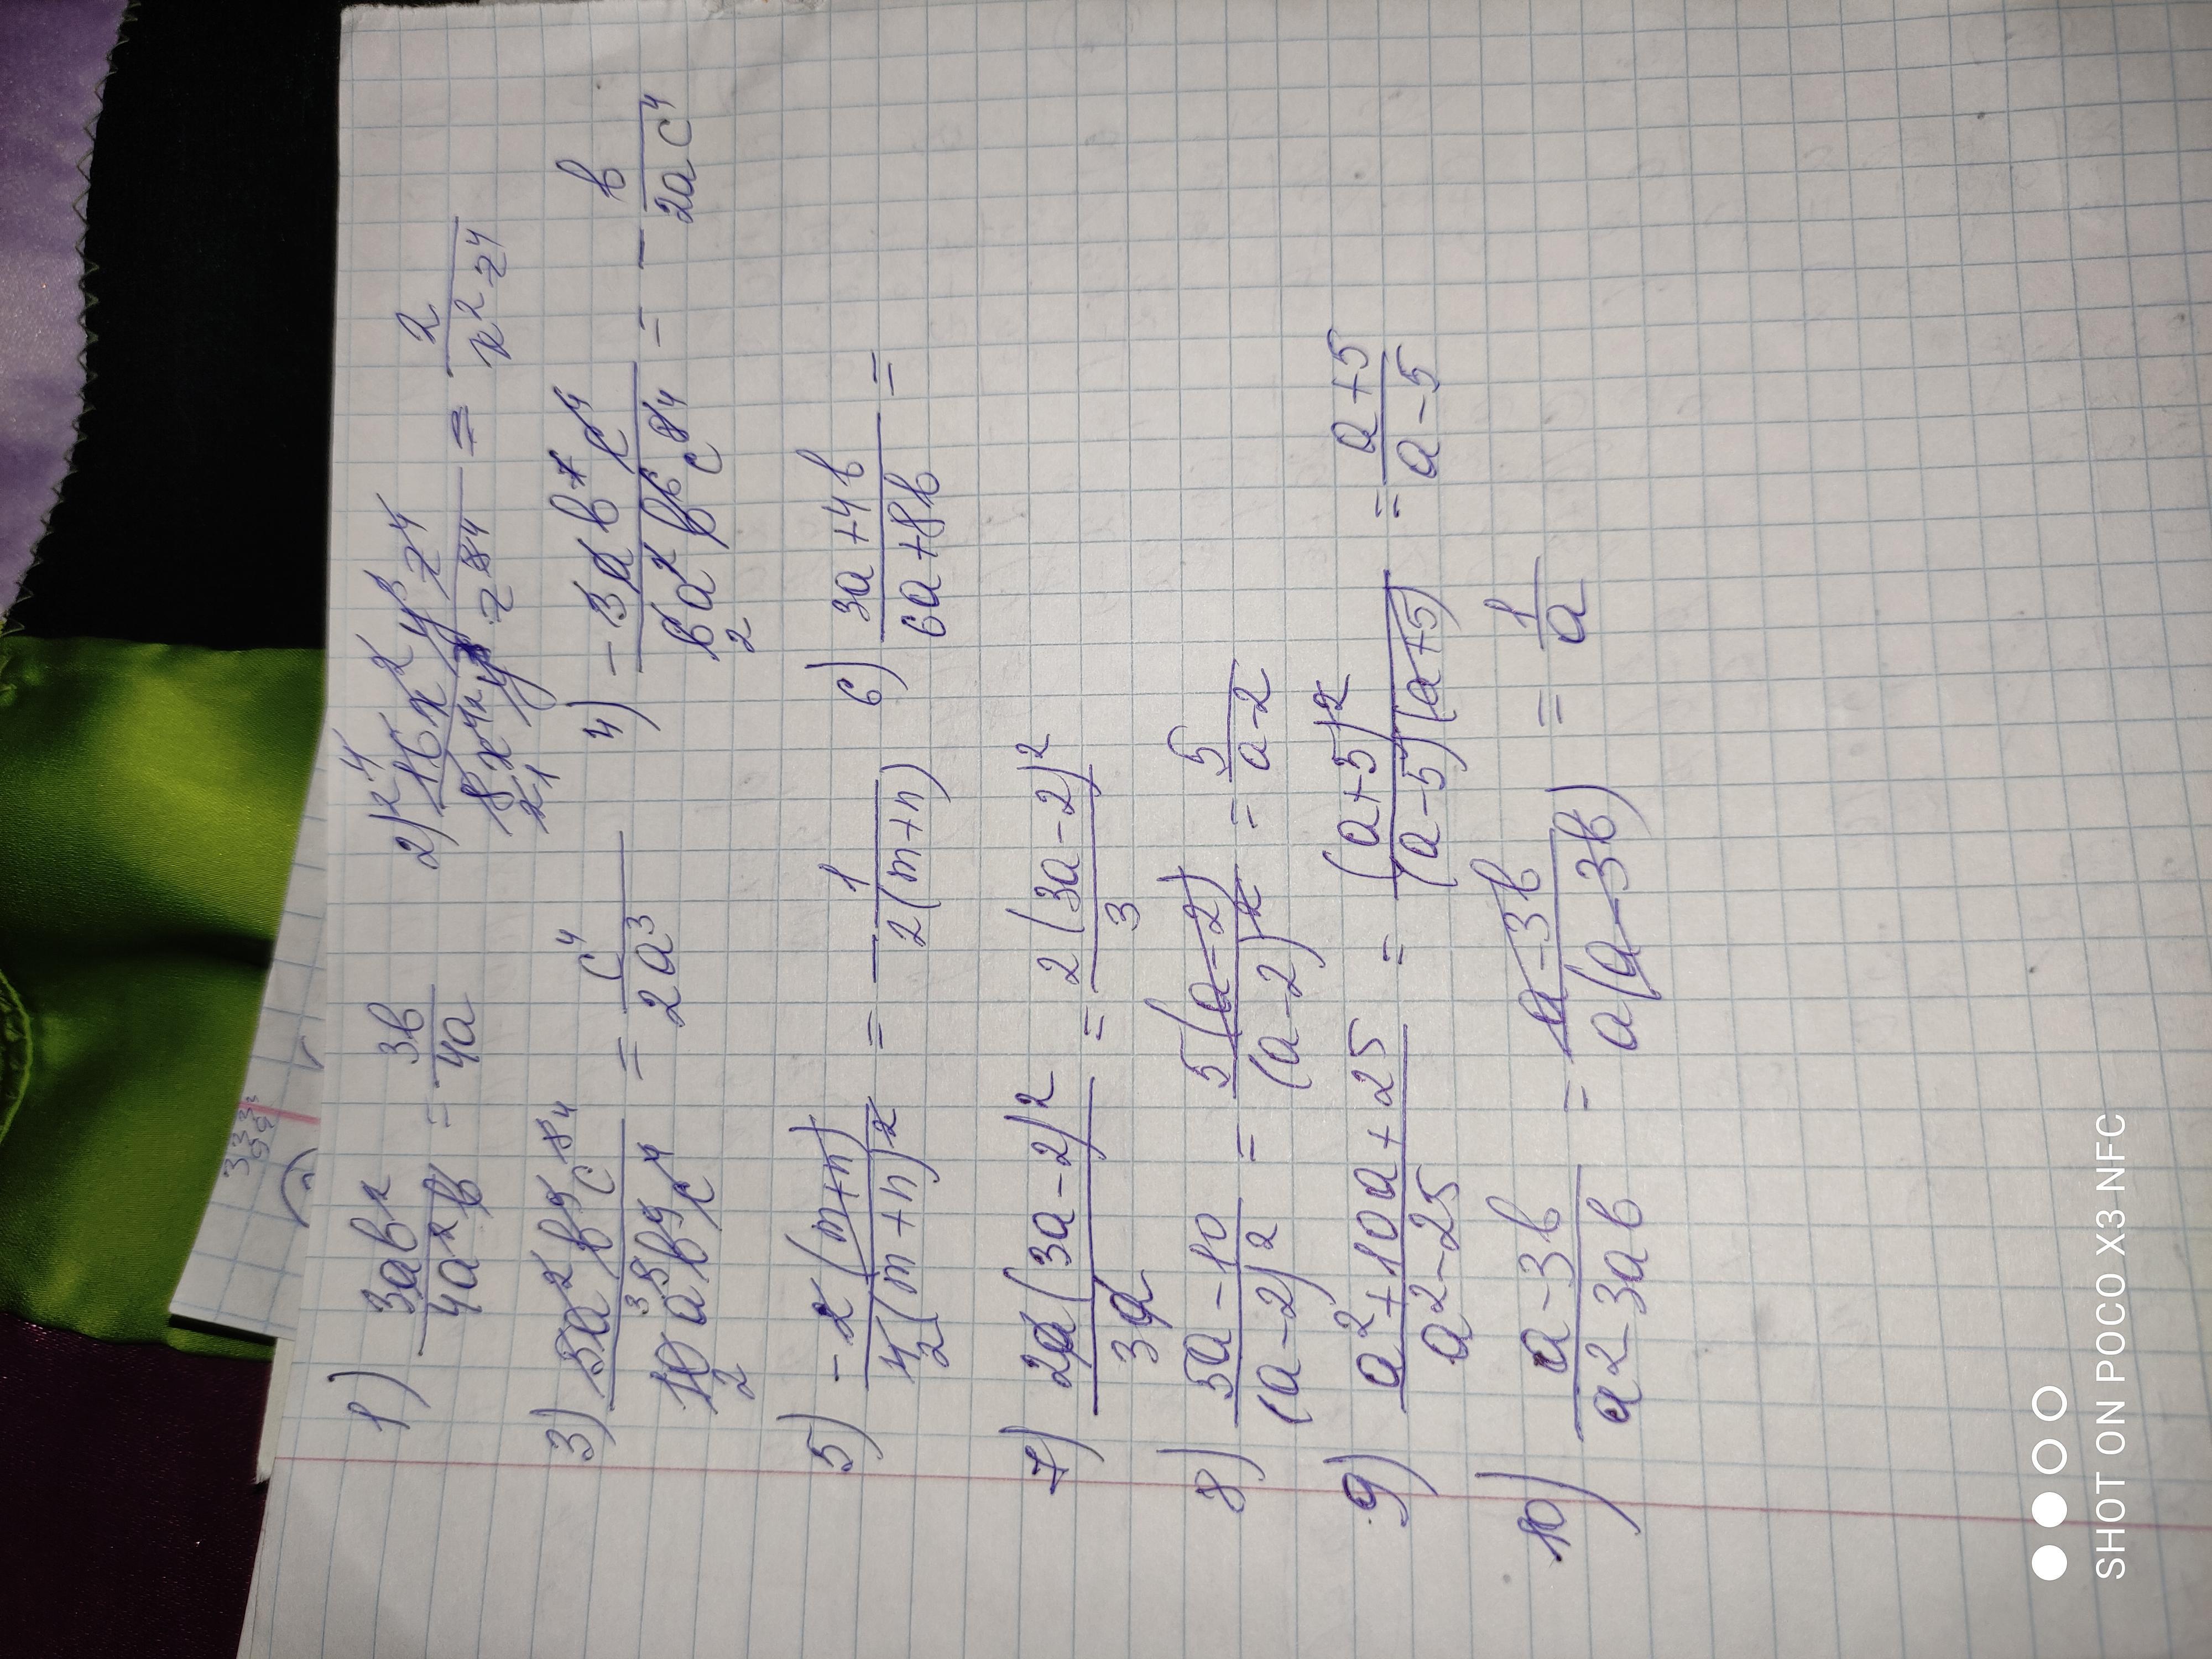 1) 3ab²/4a²b = 3b/4a 2) 16x²y³z⁴/8x⁴y³z⁸ = 2/x²z⁴
3) 5a²b⁹c⁸/10a⁵b⁹c⁴ = c⁴/2a³ 4) -3ab⁷c⁴/6a²b⁶c⁸ = - b/2ac⁴
5) -2(m+n)/4(m+n)² = - 1/2(m+n) 6) 3a+4b/6a+8b =
7) 2a(3a-2)²/3a = 2(3a-2)²/3
8) 5a-10/(a-2)² = 5(a-2)/(a-2)² = 5/a-2
9) a²+10a+25/a²-25 = (a+5)²/(a-5)(a+5) = a+5/a-5
10) a-3b/a2-3ab = a-3b/a(a-3b) = 1/a
SHOT ON POCO X3 NFC